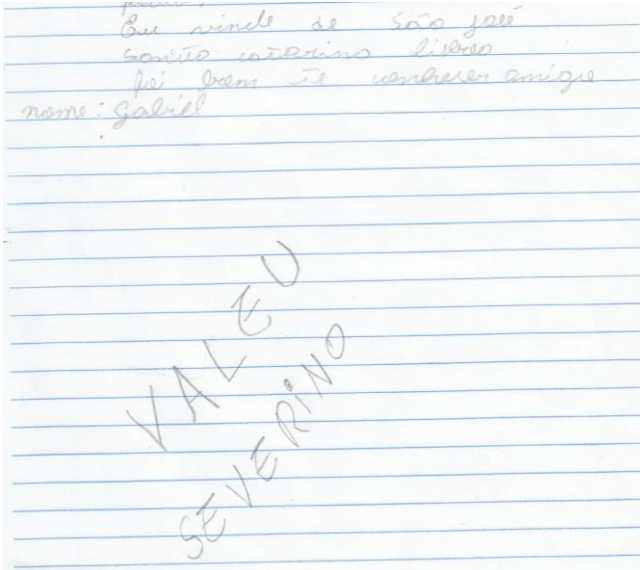 Eu vinde de São José
Santa catarina
foi bom te conhecer amigo
nome: Gabriel
VALEU
SEVERINO